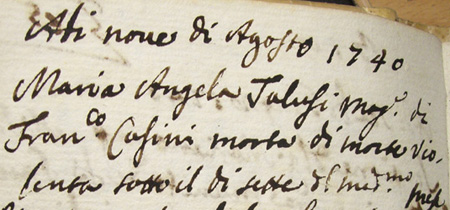 Adi nove di Agosto 1740
Maria Angela Talusi mog.e di
Fran.co Casini morta di morte vio-
lenta sotto il di sette d med.mo